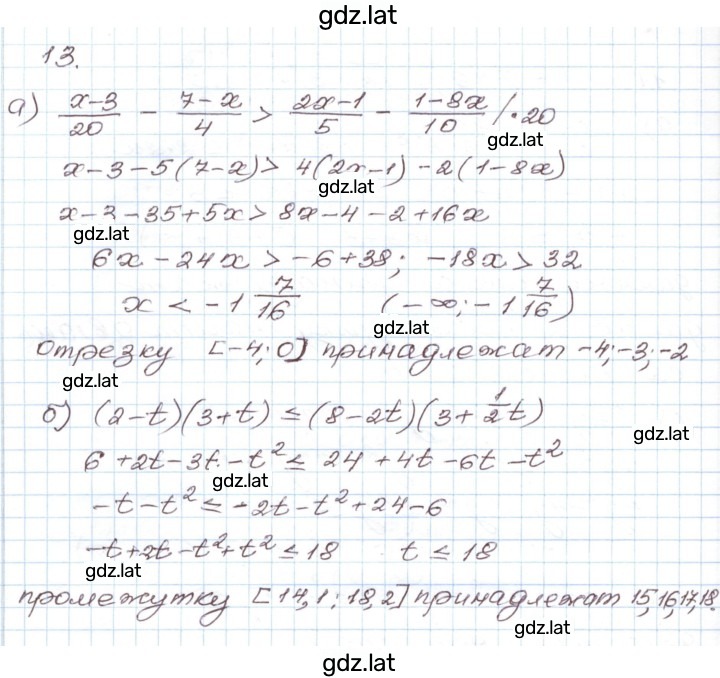 gdz.lat
13.
а) (x-3)/20 - (7-x)/4 > (2x-1)/5 - (1-8x)/10 /·20
gdz.lat
x-3-5(7-x) > 4(2x-1)-2(1-8x)
gdz.lat
x-3-35+5x > 8x-4-2+16x
gdz.lat
6x-24x > -6+38; -18x > 32
x < -1 7/16 (-∞; -1 7/16)
gdz.lat
отрезку [-4; 0] принадлежат -4; -3; -2
gdz.lat
б) (2-t)(3+t) ≤ (8-2t)(3+ 1/2 t)
gdz.lat
6+2t-3t-t² ≤ 24+4t-6t-t²
gdz.lat
-t-t² ≤ -2t-t²+24-6
-t+2t-t²+t² ≤ 18 t ≤ 18
gdz.lat
промежутку [14,1; 18,2] принадлежат 15,16,17,18.
gdz.lat
gdz.lat